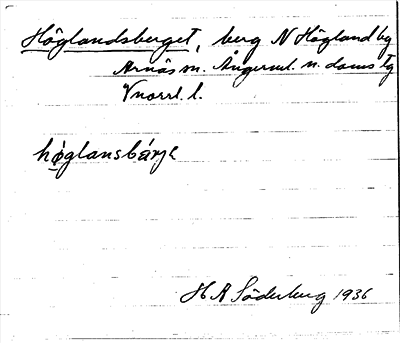 Höglandsberget, berg N Högland by
Arnäs sn. Ångerml. n. doms tg
Vnorrl. l.
høglansbärje
H R Söderberg 1936